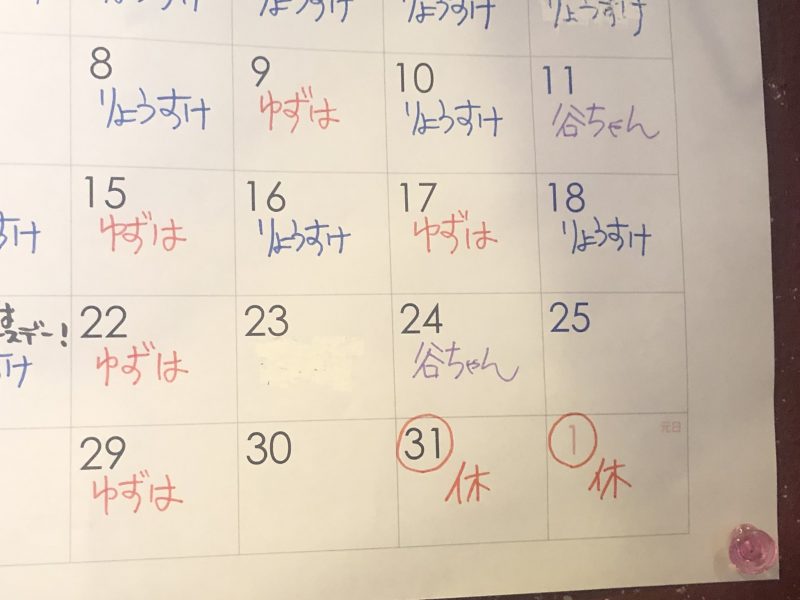 りょうすけ りょうすけ りょうすけ
8 9 10 11
りょうすけ ゆずは りょうすけ 谷ちゃん
15 16 17 18
すけ ゆずは りょうすけ ゆずは りょうすけ
22 23 24 25
スデー！
すけ ゆずは 谷ちゃん
29 30 31 1 元日
ゆずは 休 休